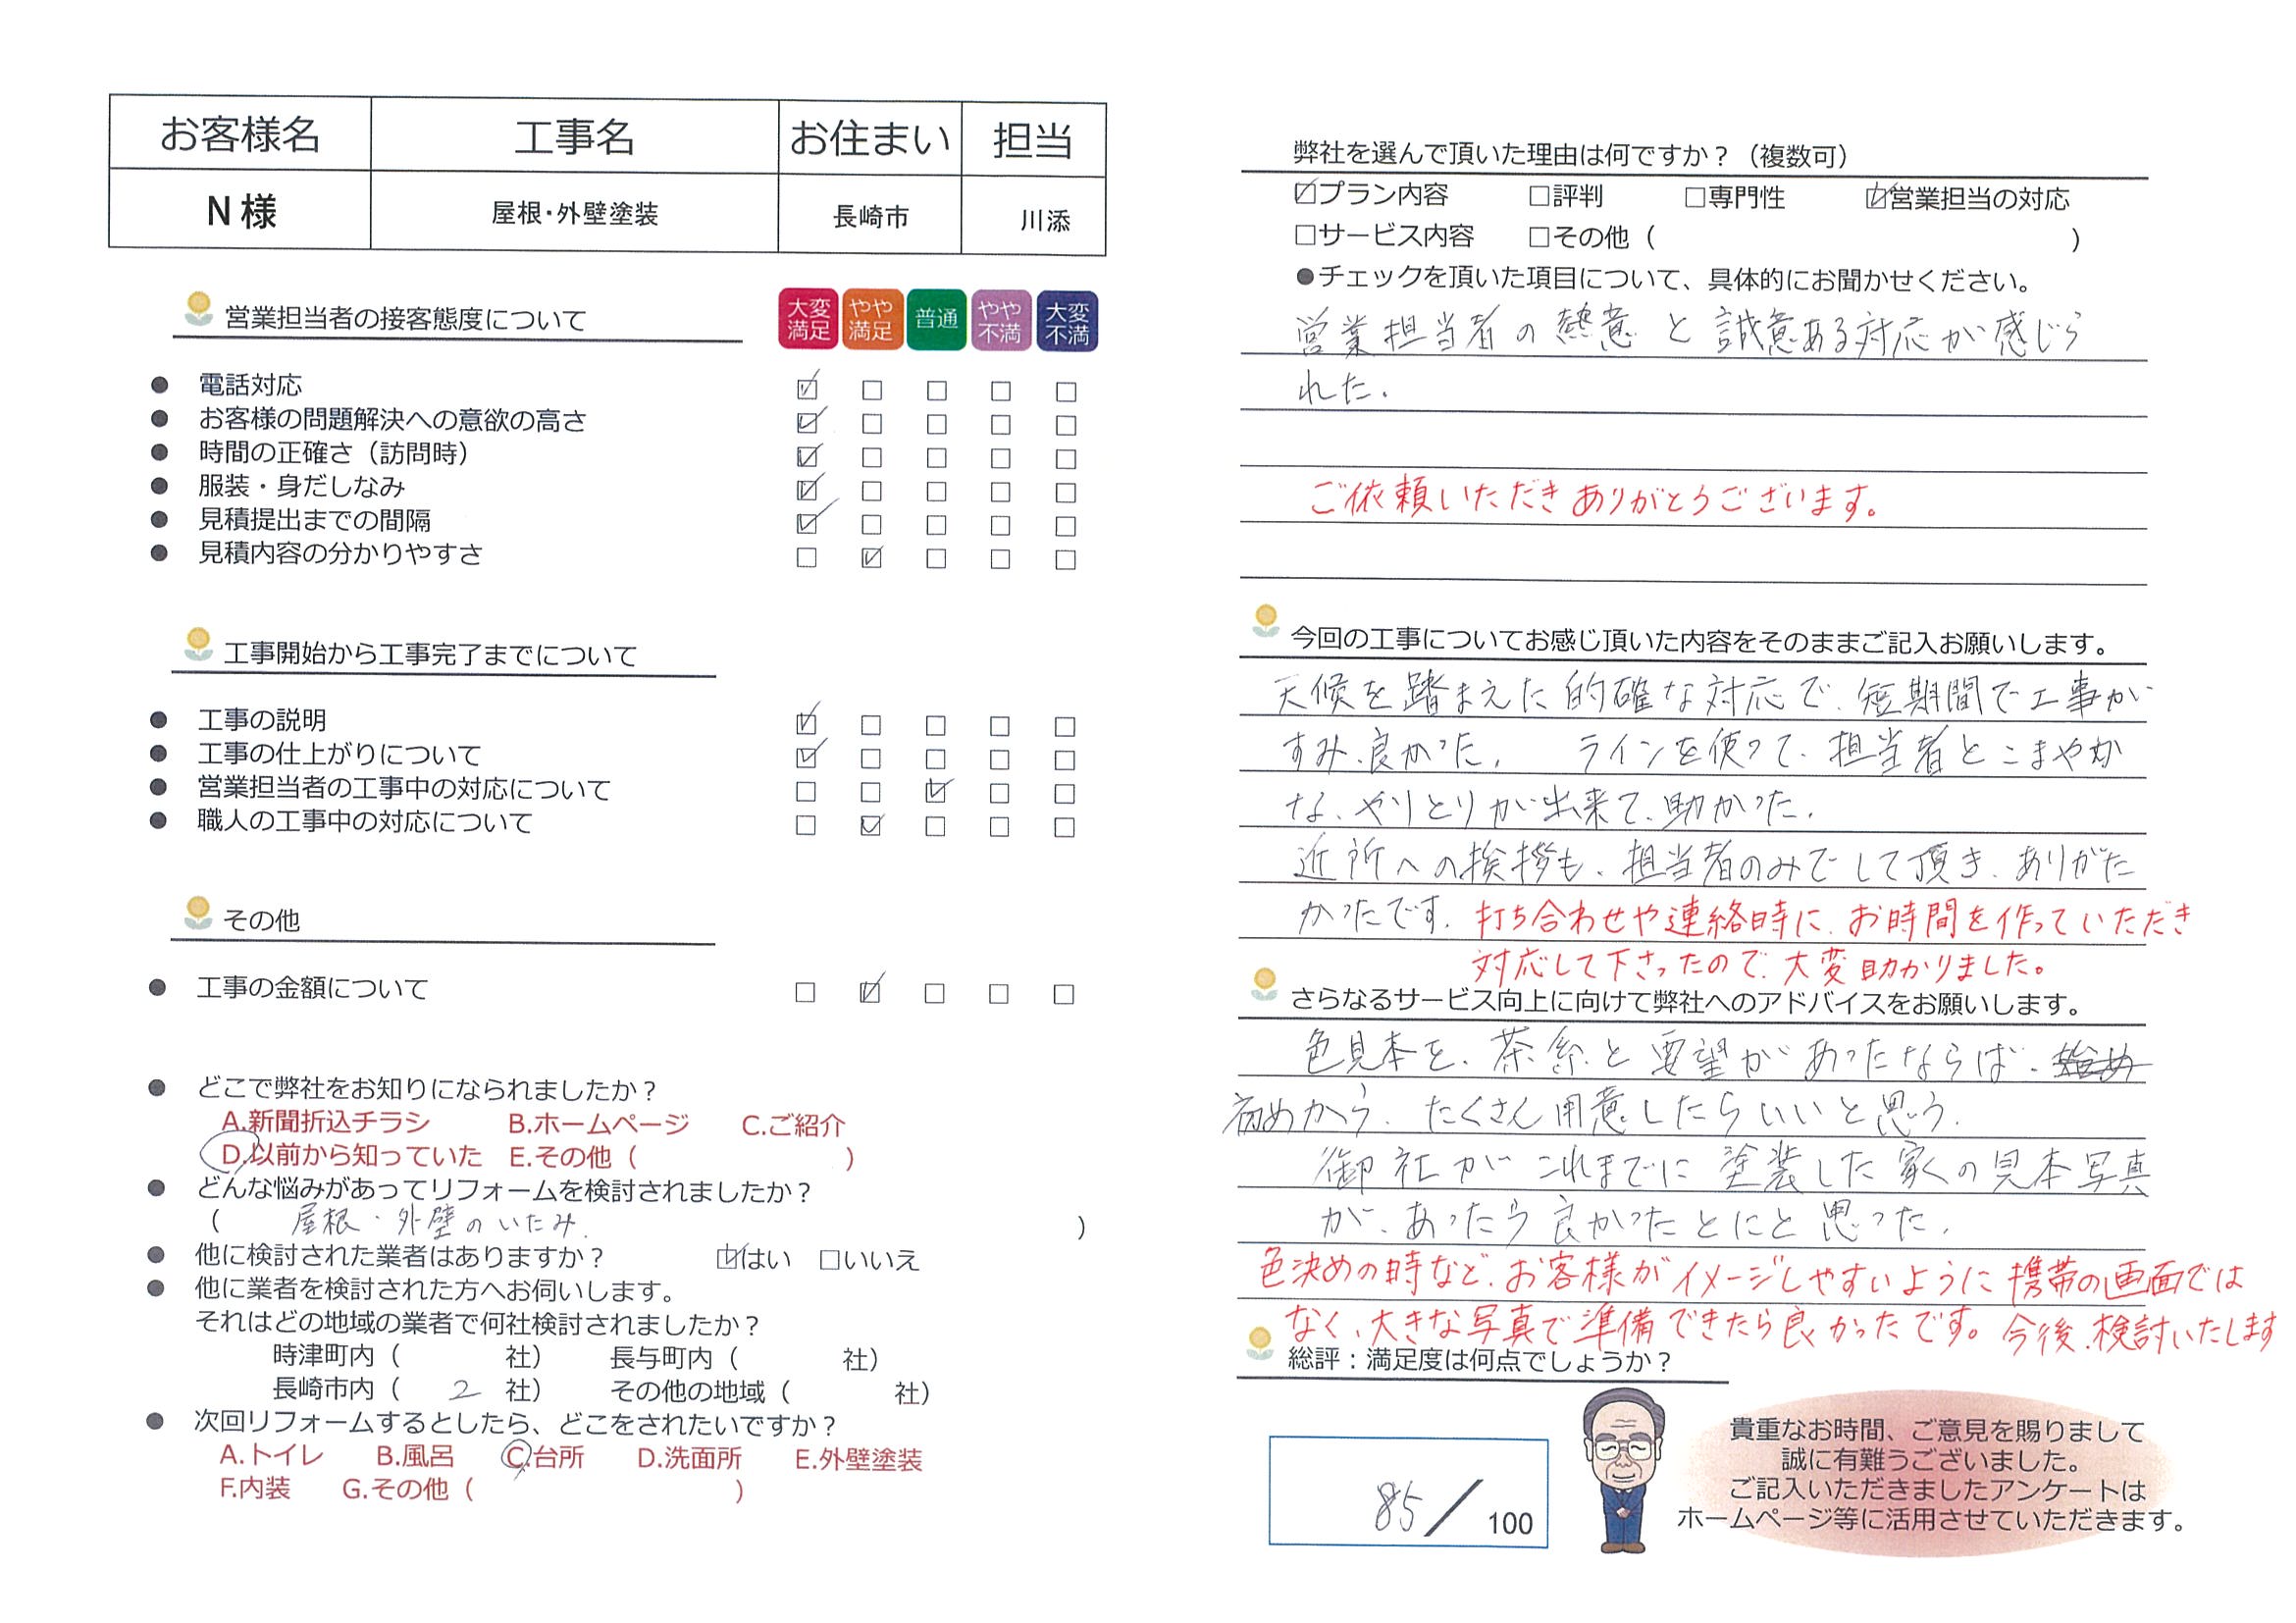 お客様名 工事名 お住まい 担当
N様 屋根・外壁塗装 長崎市 川添
営業担当者の接客態度について 大変満足 やや満足 普通 やや不満 大変不満
● 電話対応 ☑ □ □ □ □
● お客様の問題解決への意欲の高さ ☑ □ □ □ □
● 時間の正確さ（訪問時） ☑ □ □ □ □
● 服装・身だしなみ ☑ □ □ □ □
● 見積提出までの間隔 ☑ □ □ □ □
● 見積内容の分かりやすさ □ ☑ □ □ □
工事開始から工事完了までについて
● 工事の説明 ☑ □ □ □ □
● 工事の仕上がりについて ☑ □ □ □ □
● 営業担当者の工事中の対応について □ □ ☑ □ □
● 職人の工事中の対応について □ ☑ □ □ □
その他
● 工事の金額について □ ☑ □ □ □
● どこで弊社をお知りになられましたか？
A.新聞折込チラシ B.ホームページ C.ご紹介
D.以前から知っていた E.その他（ ）
● どんな悩みがあってリフォームを検討されましたか？
（ 屋根・外壁のいたみ. ）
● 他に検討された業者はありますか？ ☑はい □いいえ
● 他に業者を検討された方へお伺いします。
それはどの地域の業者で何社検討されましたか？
時津町内（ 社） 長与町内（ 社）
長崎市内（ 2 社） その他の地域（ 社）
● 次回リフォームするとしたら、どこをされたいですか？
A.トイレ B.風呂 C.台所 D.洗面所 E.外壁塗装
F.内装 G.その他（ ）
弊社を選んで頂いた理由は何ですか？（複数可）
☑プラン内容 □評判 □専門性 ☑営業担当の対応
□サービス内容 □その他（ ）
●チェックを頂いた項目について、具体的にお聞かせください。
営業担当者の熱意と誠意ある対応が感じら
れた.
ご依頼いただきありがとうございます。
今回の工事についてお感じ頂いた内容をそのままご記入お願いします。
天候を踏まえた的確な対応で、短期間で工事が
すみ、良かった. ラインを使って、担当者とこまやか
な、やりとりが出来て、助かった.
近所への挨拶も、担当者のみでして頂き、ありがた
かったです. 打ち合わせや連絡時に、お時間を作っていただき
対応して下さったので、大変助かりました。
さらなるサービス向上に向けて弊社へのアドバイスをお願いします。
色見本を、茶系と要望があったならば、始め
初めから、たくさん用意したらいいと思う.
御社がこれまでに塗装した家の見本写真
が、あったら良かったとにと思った.
色決めの時など、お客様がイメージしやすいように携帯の画面では
なく、大きな写真で準備できたら良かったです。今後、検討いたします
総評：満足度は何点でしょうか？
85/100
貴重なお時間、ご意見を賜りまして
誠に有難うございました。
ご記入いただきましたアンケートは
ホームページ等に活用させていただきます。